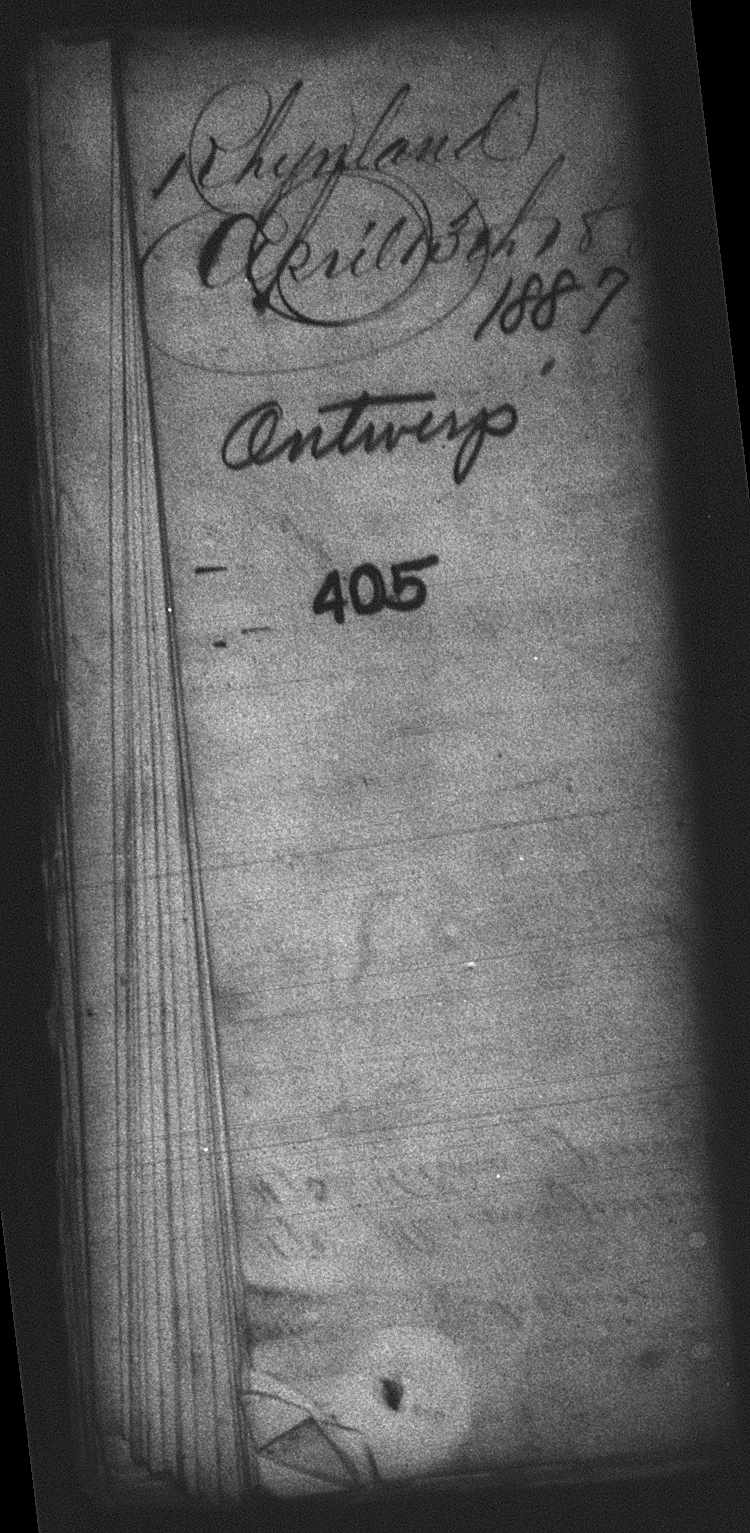 Rhynland
April 13th 18
1887
Antwerp
405